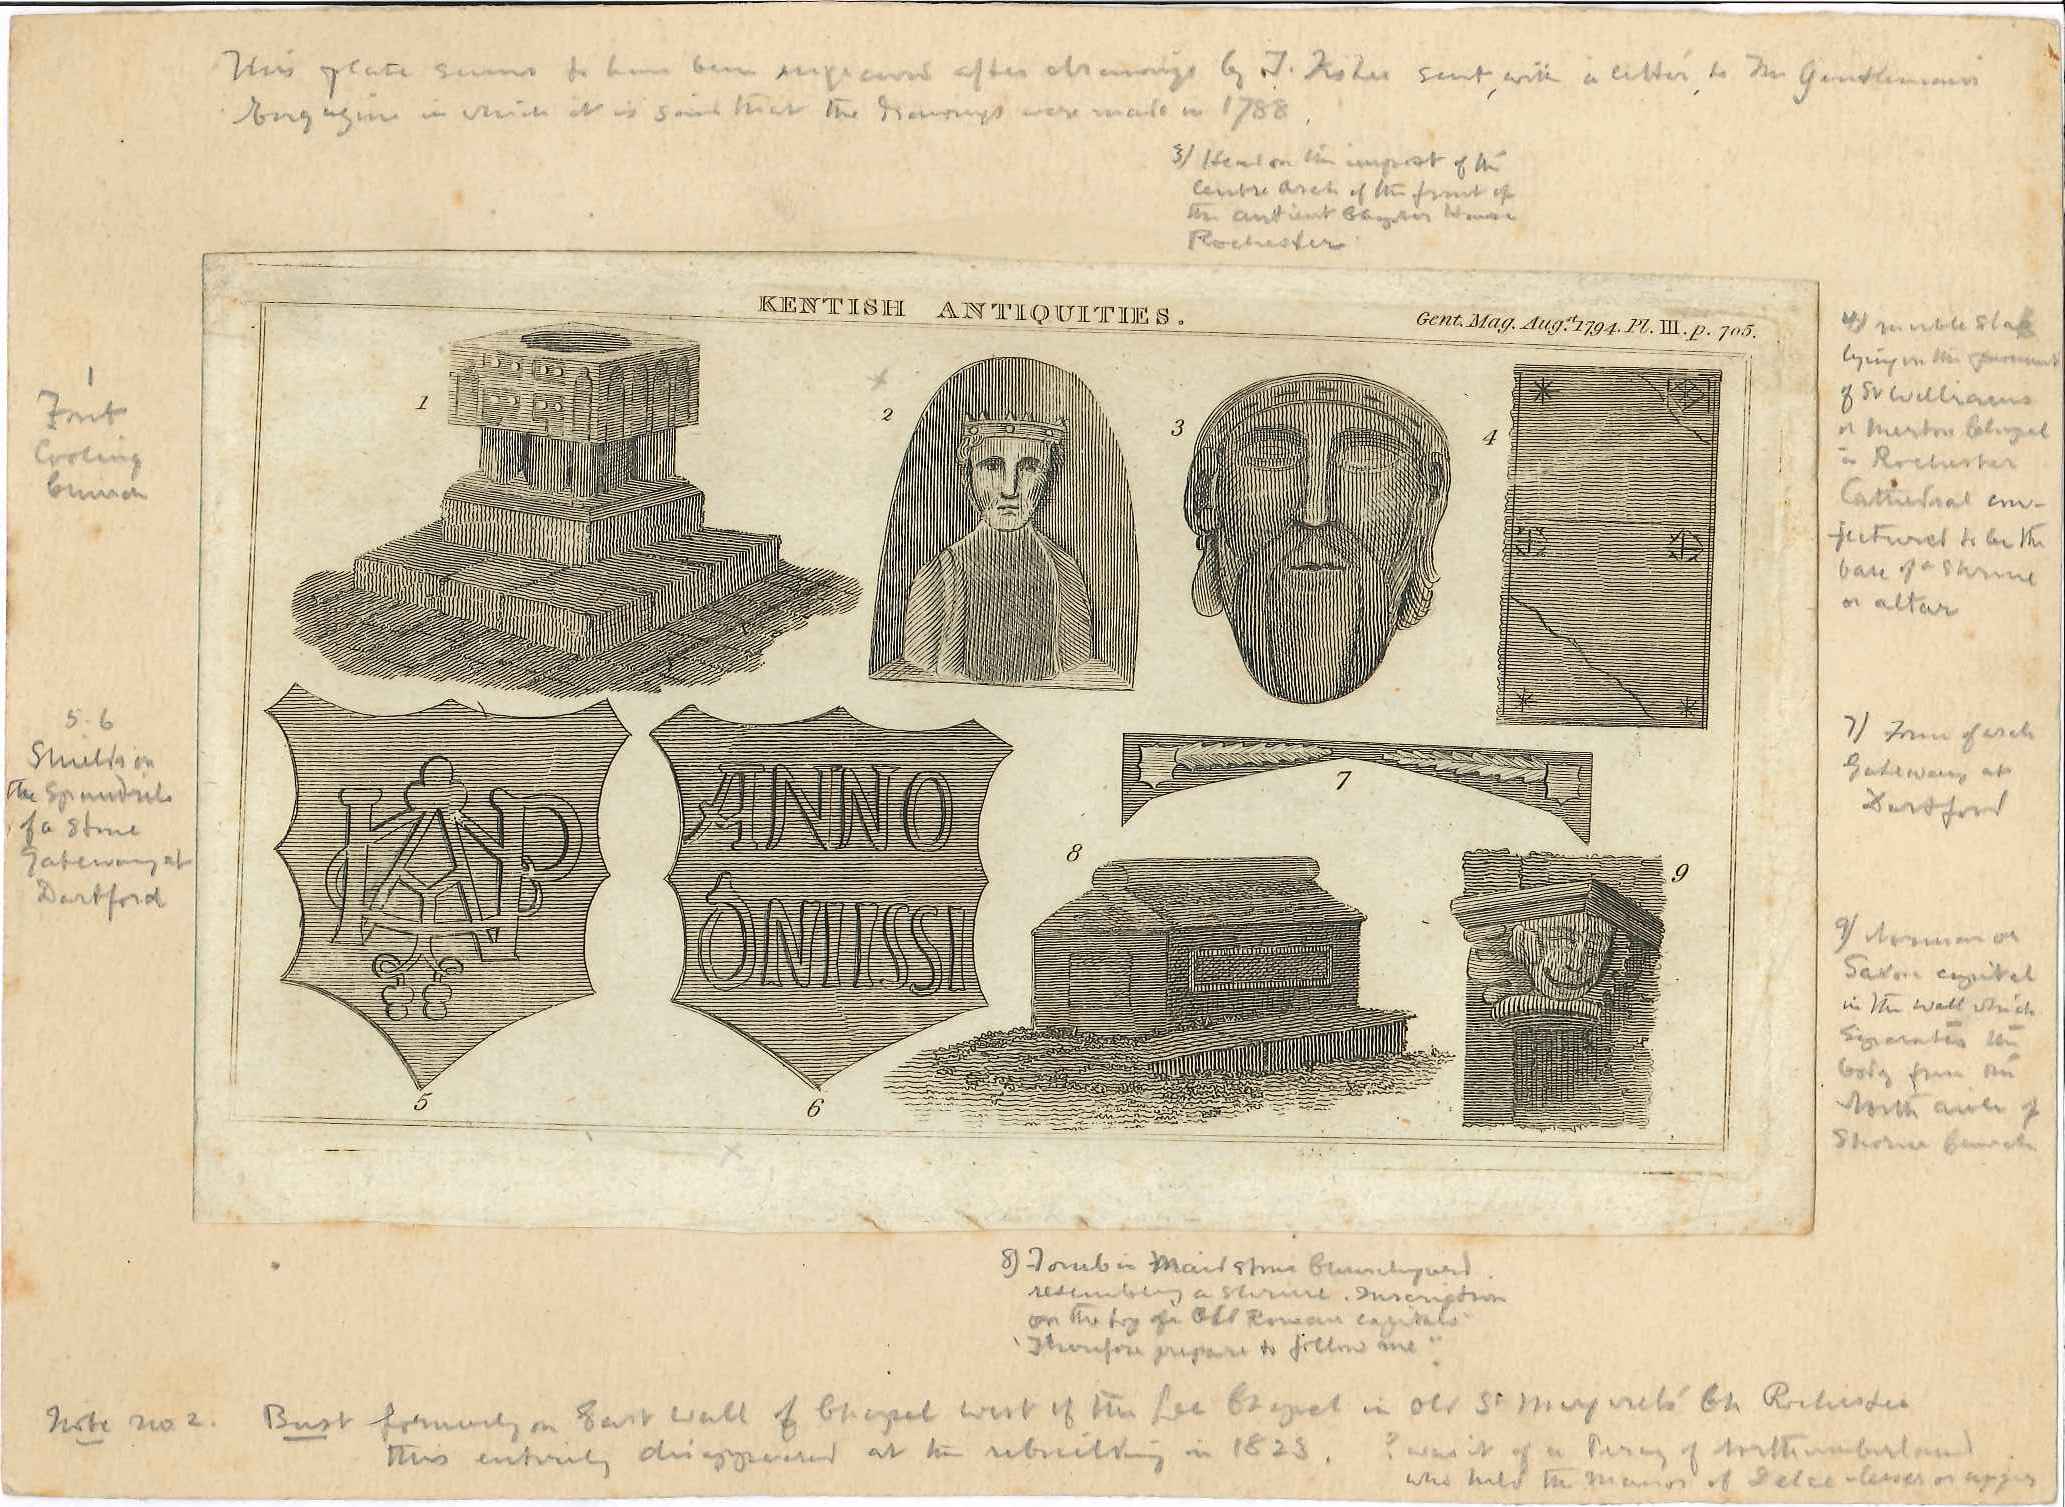 This plate seems to have been engraved after drawings by T. Fisher sent, with a letter, to The Gentleman's
Magazine in which it is said that the drawings were made in 1788.
3) Head on the impost of the
centre arch of the front of
the antient Chapter House
Rochester
KENTISH ANTIQUITIES.
Gent. Mag. Aug.st 1794. Pl. III. p. 705.
1
Font
Cooling
Church
5-6
Shields on
the Spandrils
of a Stone
Gateway at
Dartford
1
2
3
4
KAP
5
ANNO
6
7
8
9
4) marble slab
lying on the pavement
of St Williams
or Merton Chapel
in Rochester
Cathedral con-
jectured to be the
base of a Shrine
or altar
7) Form of arch
Gateway at
Dartford
9) Norman or
Saxon capital
in the wall which
Separates the
body from the
North aisle of
Shorne Church
8) Tomb in Maidstone Churchyard
resembling a shrine. Inscription
on the top of a Old Roman capitals
"Therefore prepare to follow me".
Note no 2. Bust formerly on East Wall of Chapel west of the Lee Chapel in Old St Margaret's Ch Rochester
this entirely disappeared at the rebuilding in 1823. ? was it of a Percy of Northumberland
who held the Manor of Delce lesser or upper